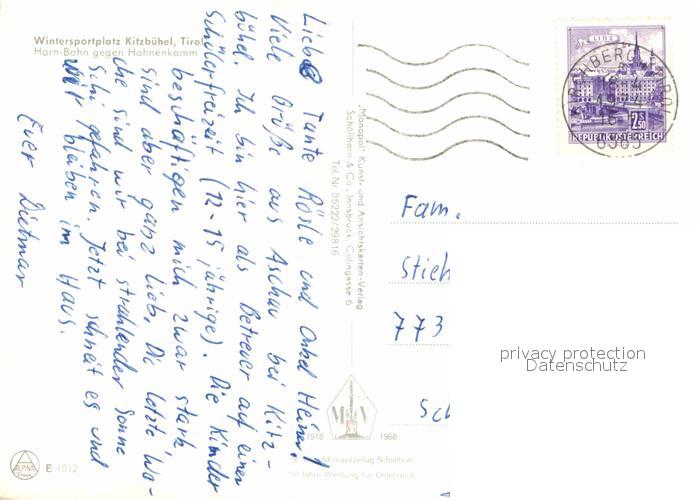 Wintersportplatz Kitzbühel, Tirol
Horn-Bahn gegen Hahnenkamm
Liebe Tante Rösle und Onkel Heiner!
Viele Grüße aus Aschau bei Kitz-
bühel. Ich bin hier als Betreuer auf einer
Schülerfreizeit (12-15 jährige). Die Kinder
beschäftigen mich zwar stark,
sind aber ganz lieb. Die letzte Wo-
che sind wir bei strahlender Sonne
Schi gefahren. Jetzt schneit es und
wir bleiben im Haus.
Euer Dietmar
„Monopol" Kunst- und Ansichtskarten-Verlag
Schöllhorn & Co., Innsbruck, Colingasse 6
Tel. Nr. 05222/29816
LINZ
2.50
REPUBLIK ÖSTERREICH
KIRCHBERG TIROL
6365
Fam.
Stieh
773
Sch
privacy protection
Datenschutz
1918 1968
Monopolverlag Schöllhorn
50 Jahre Werbung für Österreich
ALPINA
E 1012